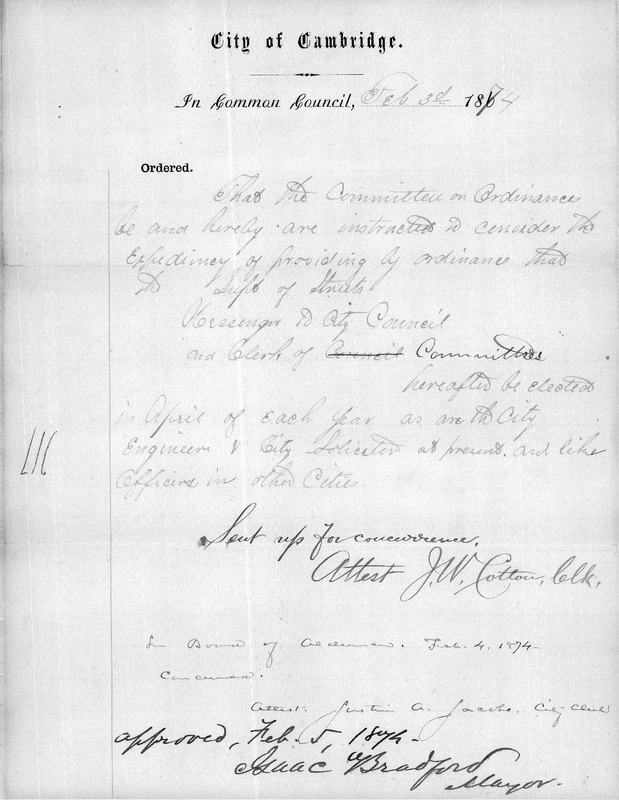 City of Cambridge.
In Common Council, Feb 3d 1874
Ordered.
That the Committee on Ordinance
be and hereby are instructed to consider the
Expediency of providing by ordinance that
the Supt of Streets
Messenger to City Council
and Clerk of Council Committees
hereafter be elected
in April of each year as are the City
Engineer & City Solicitor at present. and like
Officers in other Cities.
116
Sent up for concurrence,
Attest J.W. Cotton, Clk.
In Board of Aldermen. Feb. 4. 1874
Concurred.
Attest: Justin A. Jacobs. City Clerk
approved, Feb. 5, 1874
Isaac Bradford
Mayor.